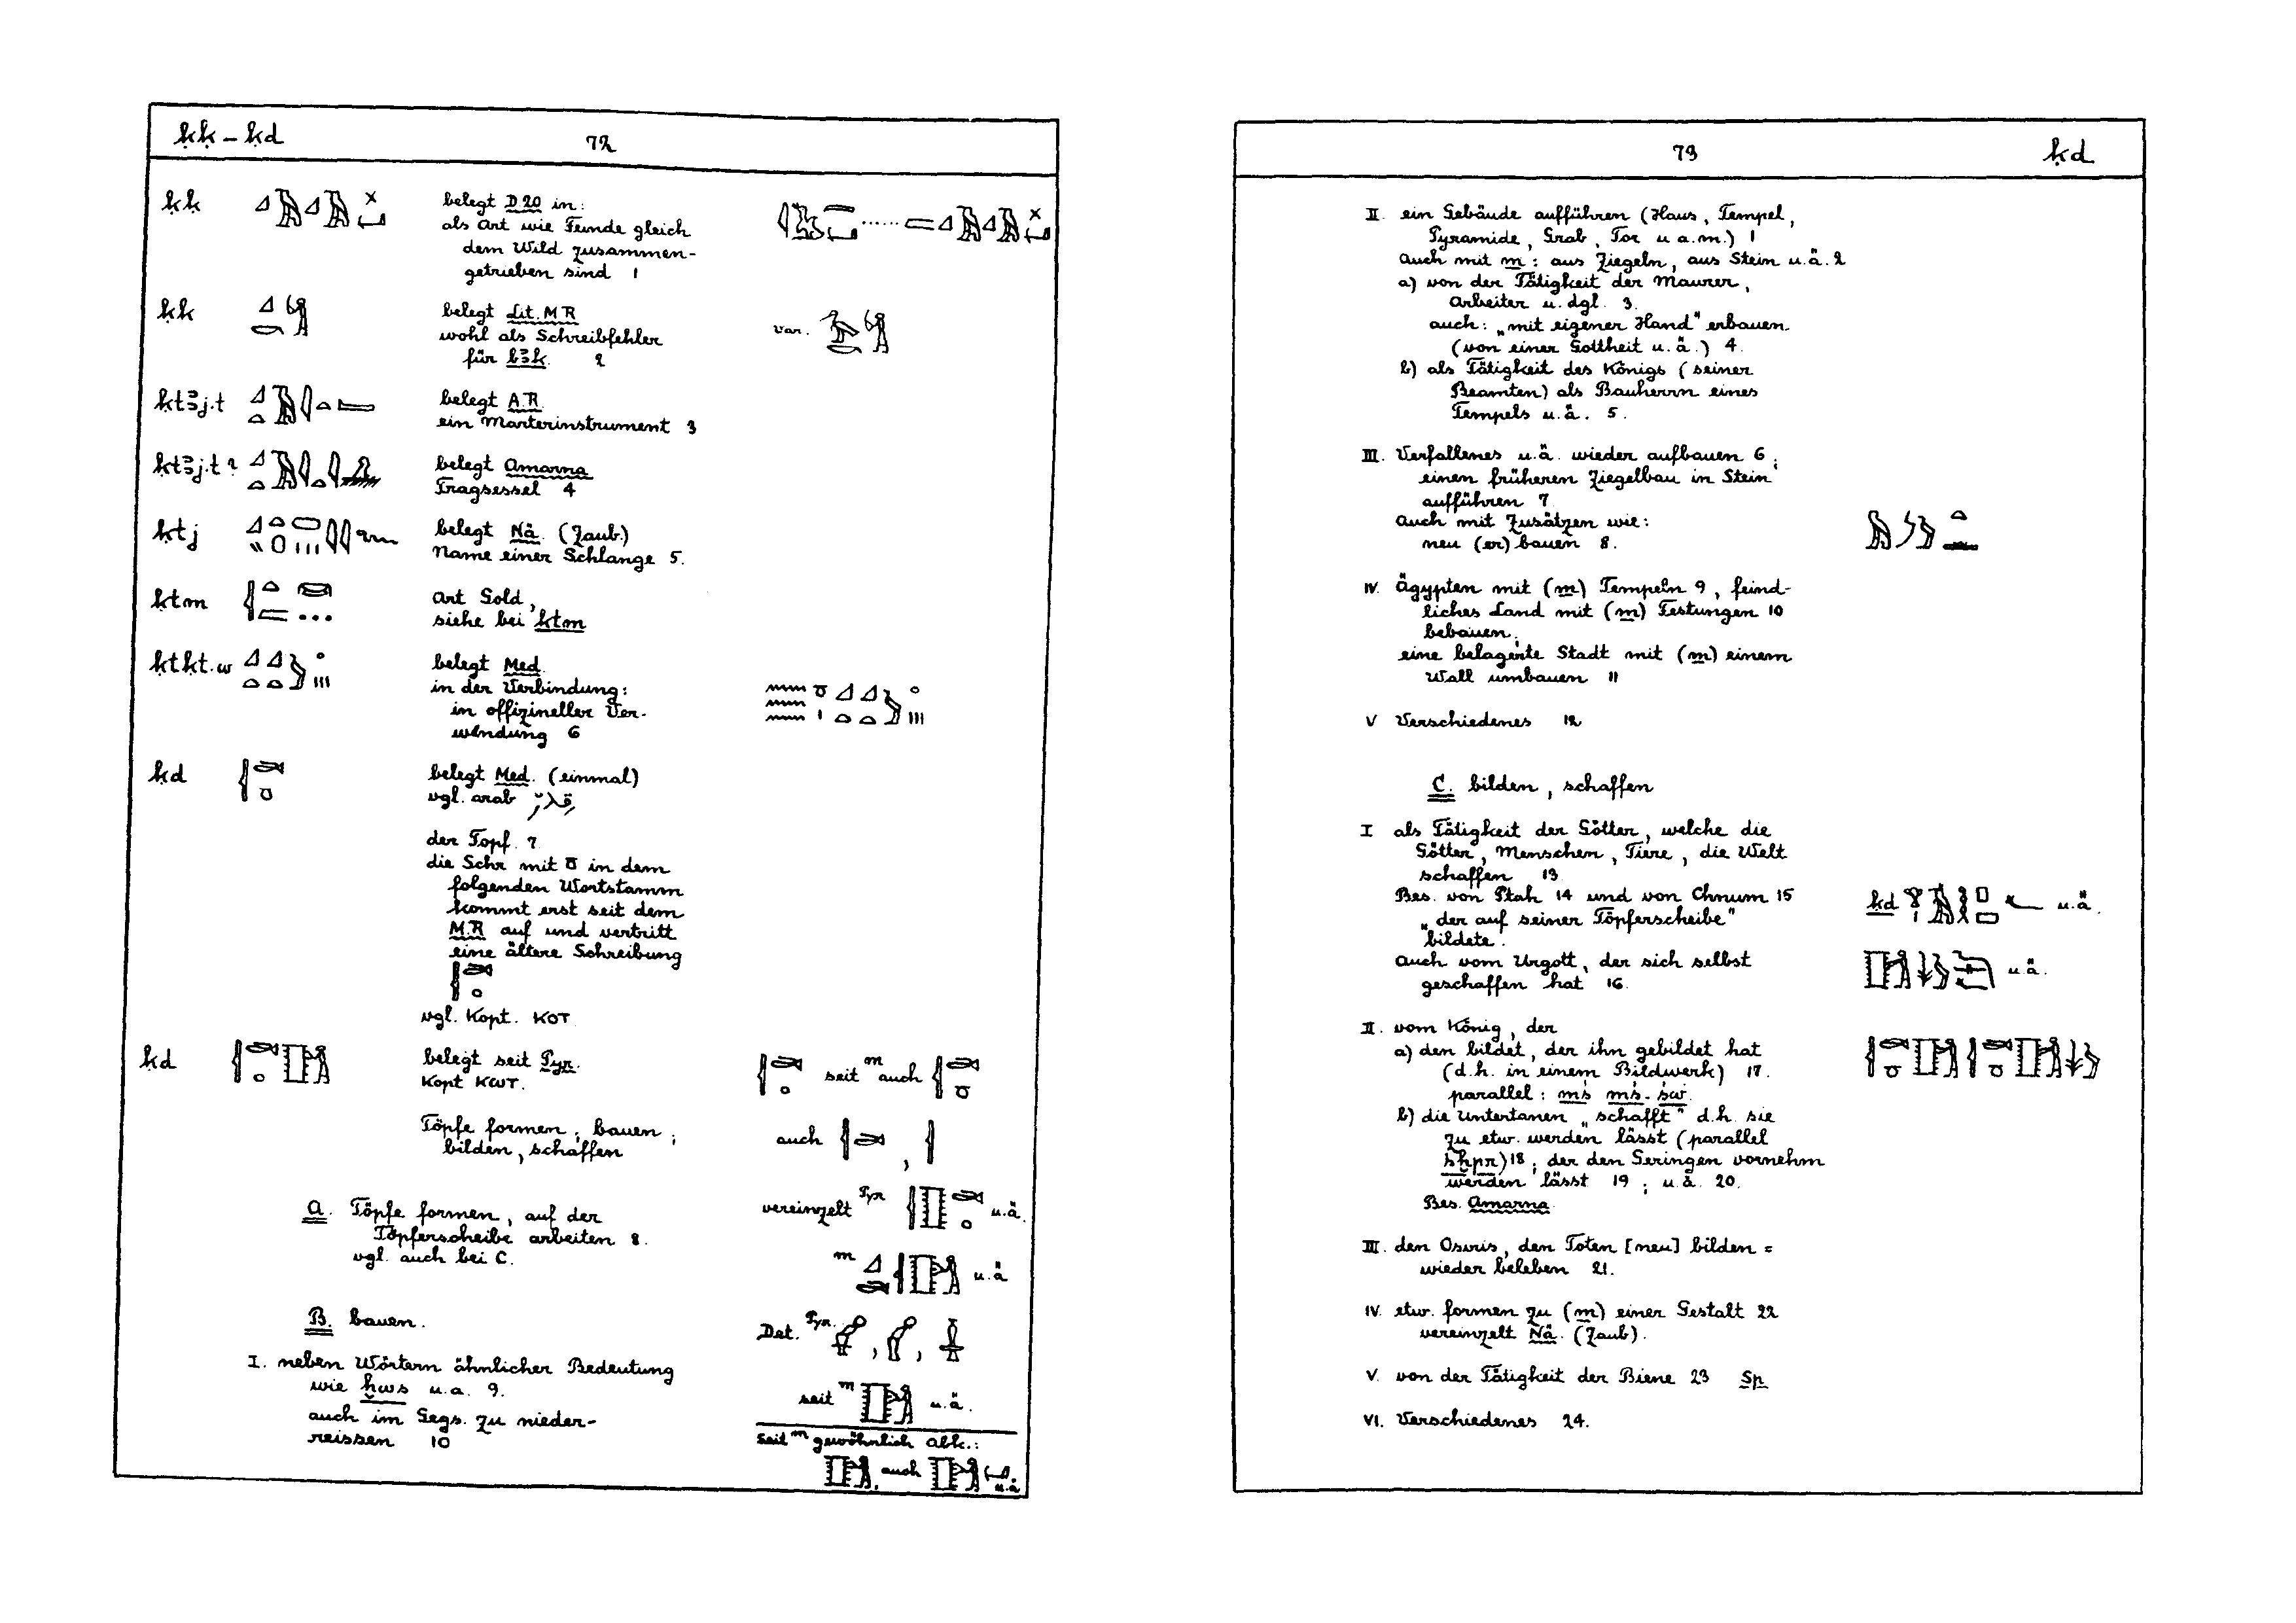 ḳḳ – ḳd
72
ḳḳ
belegt D 20 in:
als Art wie Feinde gleich
dem Wild zusammen-
getrieben sind 1
ḳk
belegt Lit. MR
wohl als Schreibfehler
für bꜣk. 2
var.
ḳtꜣj.t
belegt A.R.
ein Marterinstrument 3
ḳtꜣj.t ?
belegt Amarna
Tragsessel 4
ḳtj
belegt Nä. (Zaub.)
Name einer Schlange 5.
ḳtm
Art Gold,
siehe bei ktm
ḳtḳt.w
belegt Med.
in der Verbindung:
in offizineller Ver-
wendung 6
ḳd
belegt Med. (einmal)
vgl. arab
der Topf. 7
die Schr mit in dem
folgenden Wortstamm
kommt erst seit dem
M.R auf und vertritt
eine ältere Schreibung
vgl. Kopt. ⲕⲟⲧ
ḳd
belegt seit Pyr.
Kopt ⲕⲱⲧ.
seit m auch
Töpfe formen; bauen;
bilden, schaffen
auch
A. Töpfe formen, auf der
Töpferscheibe arbeiten 8.
vgl. auch bei C.
vereinzelt Pyr u.ä.
m u.ä
B. bauen.
Det. Pyr.
I. neben Wörtern ähnlicher Bedeutung
wie ḫws u.a. 9.
auch im Gegs. zu nieder-
reissen 10
seit m u.ä.
Seit m gewöhnlich abk.:
auch u.ä.
73
ḳd
II. ein Gebäude aufführen (Haus, Tempel,
Pyramide, Grab, Tor u a.m.) 1
Auch mit m: aus Ziegeln, aus Stein u.ä. 2
a) von der Tätigkeit der Maurer,
Arbeiter u. dgl. 3.
auch: „mit eigener Hand" erbauen.
(von einer Gottheit u.ä.) 4.
b) als Tätigkeit des Königs (seiner
Beamten) als Bauherrn eines
Tempels u.ä. 5.
III. Verfallenes u.ä. wieder aufbauen 6;
einen früheren Ziegelbau in Stein
aufführen 7
Auch mit Zusätzen wie:
neu (er) bauen 8.
IV. Ägypten mit (m) Tempeln 9, feind-
liches Land mit (m) Festungen 10
bebauen;
eine belagerte Stadt mit (m) einem
Wall umbauen 11
V Verschiedenes 12
C. bilden, schaffen
I als Tätigkeit der Götter, welche die
Götter, Menschen, Tiere, die Welt
schaffen 13
Bes. von Ptah 14 und von Chnum 15
„der auf seiner Töpferscheibe"
bildete.
ḳd u.ä.
Auch vom Urgott, der sich selbst
geschaffen hat 16.
u.ä.
II. vom König, der
a) den bildet, der ihn gebildet hat
(d.h. in einem Bildwerk) 17.
parallel: mś mś-św.
b) die Untertanen „schafft" d.h. sie
zu etw. werden lässt (parallel
śḫpr) 18; der den Geringen vornehm
werden lässt 19; u.ä. 20.
Bes. Amarna
III. den Osiris, den Toten [neu] bilden =
wieder beleben 21.
IV. etw. formen zu (m) einer Gestalt 22
vereinzelt Nä. (Zaub).
V. von der Tätigkeit der Biene 23 Sp
VI. Verschiedenes 24.